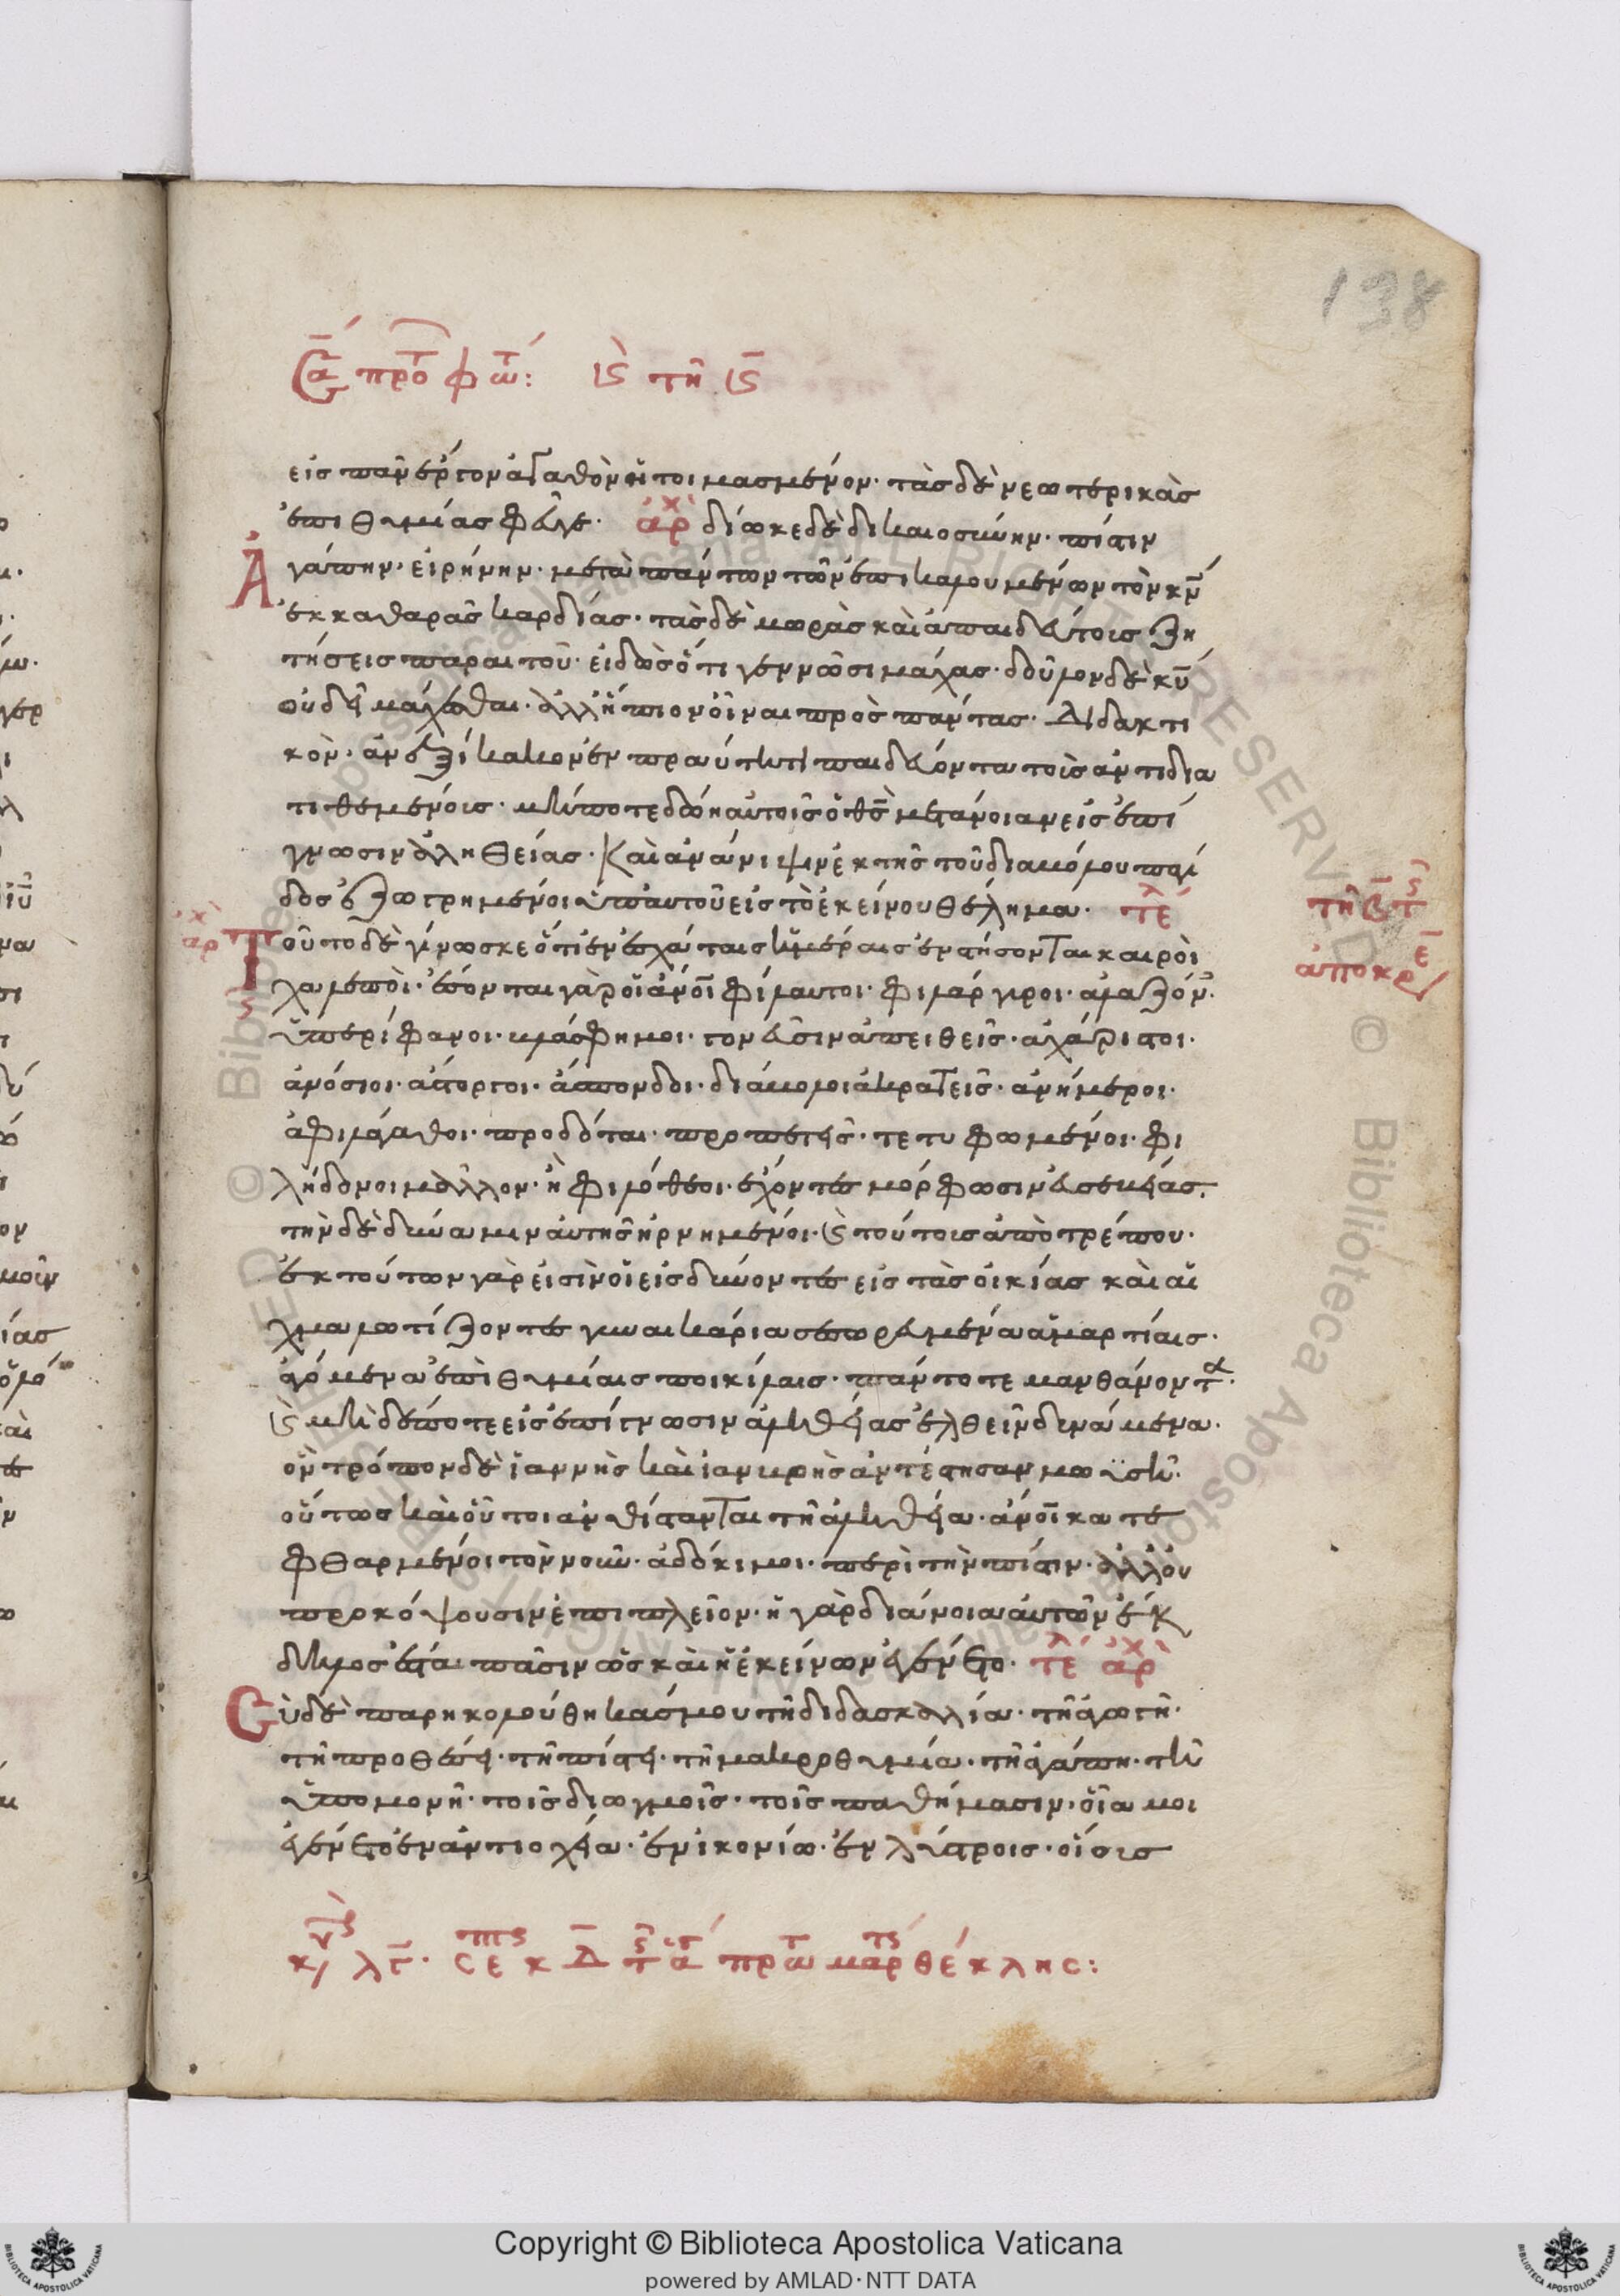 138
εἰς πᾶν ἔργον ἀγαθὸν ἡτοιμασμένον· τὰς δὲ νεωτερικὰς
ἐπιθυμίας φεῦγε· ἀρχ δίωκε δὲ δικαιοσύνην· πίστιν
ἀγάπην· εἰρήνην· μετὰ πάντων τῶν ἐπικαλουμένων τὸν κν
ἐκ καθαρᾶς καρδίας· τὰς δὲ μωρὰς καὶ ἀπαιδεύτοις ζη
τήσεις παραιτοῦ· εἰδὼς ὅτι γεννῶσι μάχας· δοῦλον δὲ κυ
οὐ δεῖ μάχεσθαι· ἀλλ' ἤπιον εἶναι πρὸς πάντας· Διδακτι
κόν· ἀνεξίκακον ἐν πραΰτητι παιδεύοντα τοὺς ἀντιδια
τιθεμένοις· μήποτε δώη αὐτοῖς ὁ θς μετάνοιαν εἰς ἐπί
γνωσιν ἀληθείας· Καὶ ἀνανίψιν ἐκ τῆς τοῦ διαβόλου παγί
δος ἐζωγρημένοι ὑπ' αὐτοῦ εἰς τὸ ἐκείνου θέλημα· τέλ
Τοῦτο δὲ γίνωσκε ὅτι ἐν ἐσχάταις ἡμέραις ἐνστήσονται καιροὶ
χαλεποί· ἔσονται γὰρ οἱ ἀνοι φίλαυτοι· φιλάργυροι· ἀλαζόν·
ὑπερίφανοι· βλάσφημοι· γονεῦσιν ἀπειθεῖς· ἀχάριστοι·
ἀνόσιοι· ἄστοργοι· ἄσπονδοι· διάβολοι ἀκρατεῖς· ἀνήμεροι·
ἀφιλάγαθοι· προδόται· προπετεῖς· τετυφωμένοι· φι
λήδονοι μᾶλλον· ἢ φιλόθεοι· ἔχοντες μόρφωσιν εὐσεβείας·
τὴν δὲ δύναμιν αὐτῆς ἠρνημένοι· κ τούτοις ἀπότρέπου·
ἐκ τούτων γάρ εἰσὶν οἱ εἰσδύνοντες εἰς τὰς οἰκίας καὶ αἰ
χμαλωτίζοντες γυναικάρια σεσωρευμένα ἁμαρτίαις·
ἀγόμενα ἐπιθυμίαις ποικίλαις· πάντοτε μανθάνοντα·
κ μὴ δέποτε εἰς ἐπίγνωσιν ἀληθείας ἐλθεῖν δυνάμενα·
ὃν τρόπον δὲ ἰαννὴς καὶ ἰαμβρὴς ἀντέστησαν μωϋσῆ·
οὕτως καὶ οὗτοι ἀνθίστανται τῆ ἀληθεία· ἀνοι κατε
φθαρμένοι τὸν νοῦν· ἀδόκιμοι· περὶ τὴν πίστιν· ἀλλ' οὐ
προκόψουσιν ἐπιπλεῖον· ἡ γὰρ διάνοια αὐτῶν ἔκ
δηλος ἔσται πᾶσιν ὡς καὶ ἡ ἐκείνων ἐγένετο· τέλ ἀρχ
Σὺ δὲ παρηκολούθηκάς μου τῆ διδασκαλλία· τῆ ἀγωγῆ·
τῆ προθέσει· τῆ πίστει· τῆ μακροθυμία· τῆ ἀγάπη· τῆ
ὑπομονῆ· τοῖς διωγμοῖς· τοῖς παθήμασιν· οἷά μοι
ἐγένετο ἐν ἀντιοχεία· ἐν ἰκονίω· ἐν λύστροις· οἵους
Copyright © Biblioteca Apostolica Vaticana
powered by AMLAD·NTT DATA